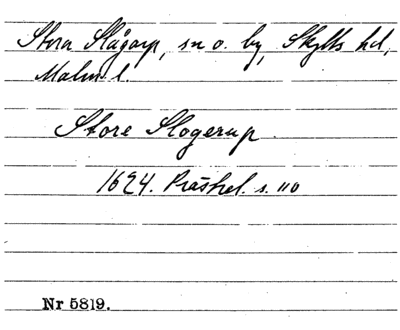 Stora Slågarp, sn o. by, Skytts hd,
Malm. l.
Store Slogerup.
1624. Präsrel. s. 110
Nr 5819.